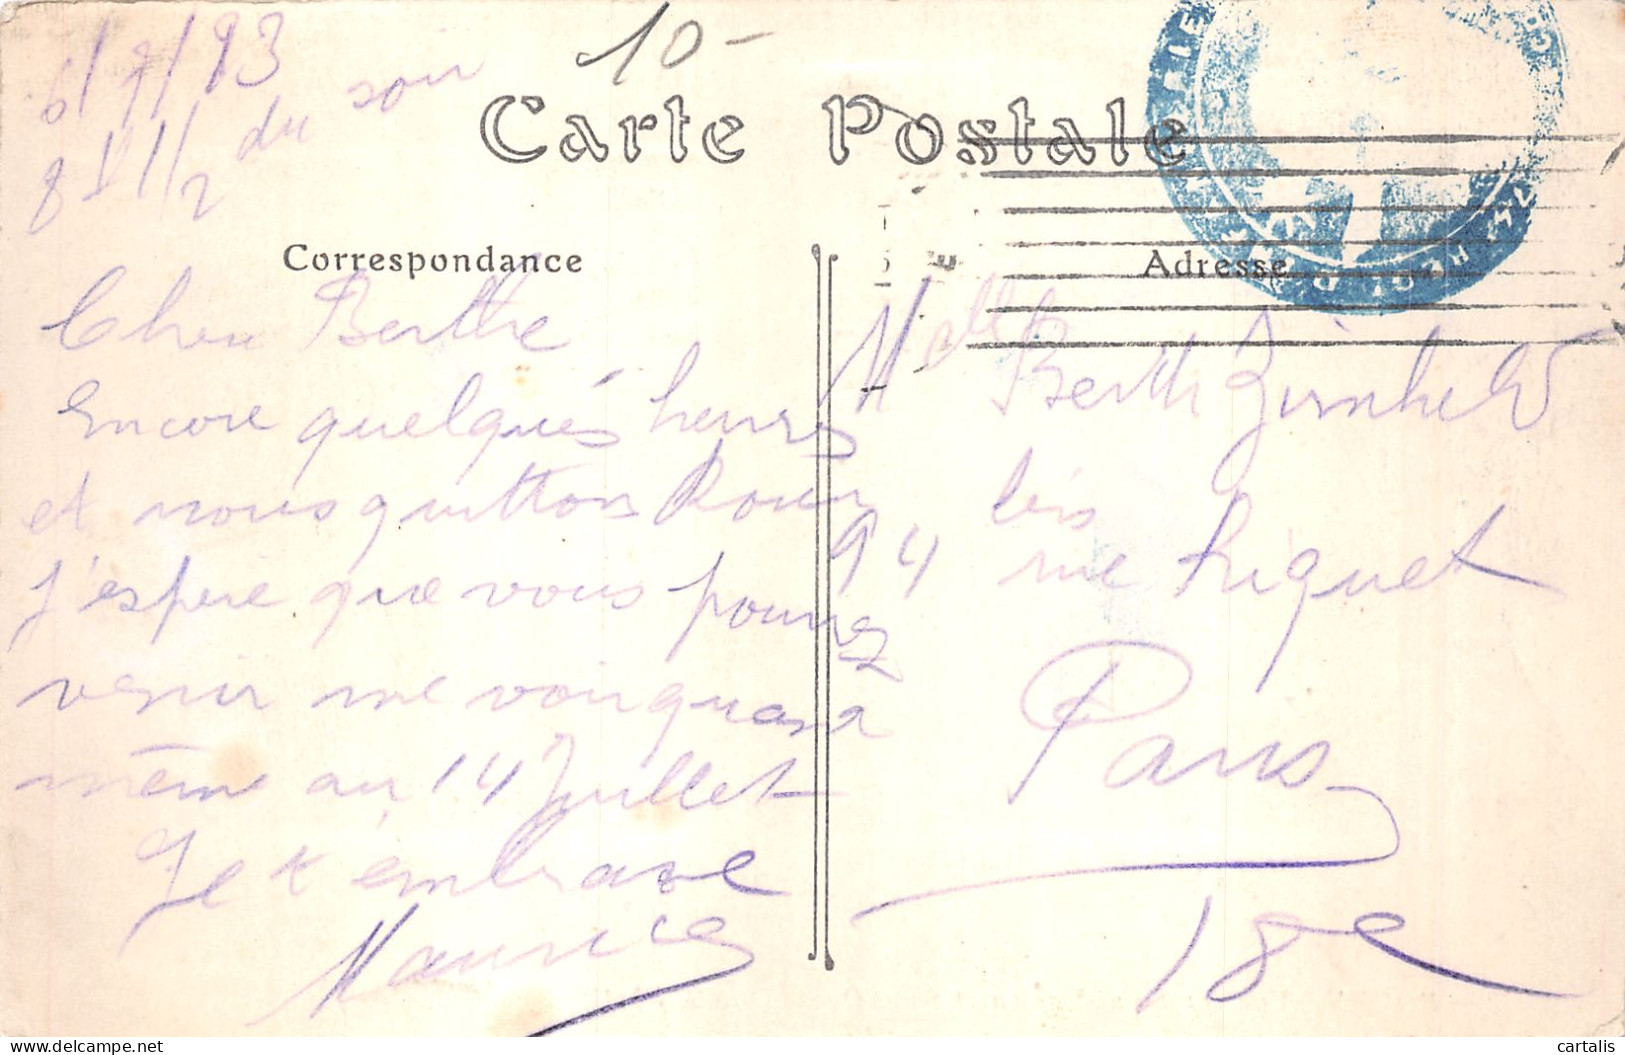 10-
6/7/13
8 h 1/2 du soir
Carte Postale
Correspondance
Adresse
Cher Berthe
Encore quelques heures
et nous quittons Rouen
J'espere que vous pourrez
venir me voir quand
même au 14 Juillet
Je t'embrasse
Maurice
Melle Berthe Zirnheld
94 bis
rue Riquet
Paris
18e
cartalis